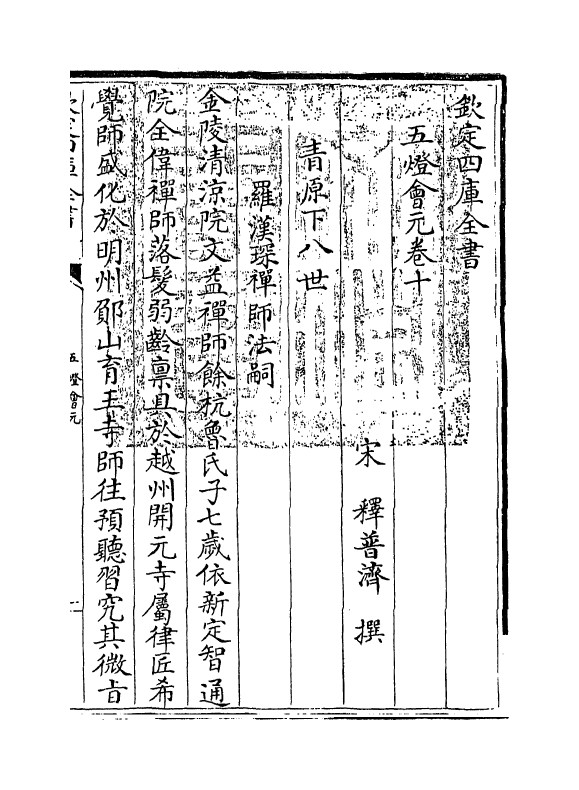 欽定四庫全書
五燈會元卷十
宋 釋普濟 撰
青原下八世
羅漢琛禪師法嗣
金陵清涼院文益禪師餘杭魯氏子七歲依新定智通
院全偉禪師落髮弱齡禀具於越州開元寺屬律匠希
覺師盛化於明州鄮山育王寺師往預聽習究其微㫖
五燈會元